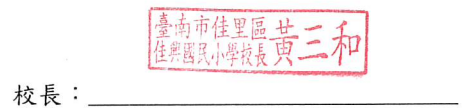 臺南市佳里區
佳興國民小學校長黃三和
校長：